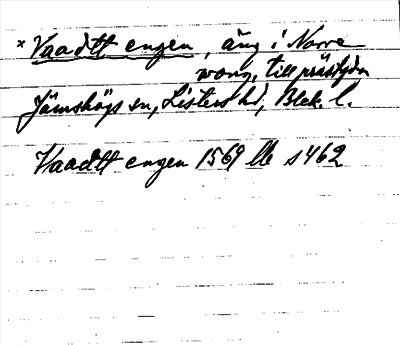 *Vaadtt engen, äng i Norre
wong, till prästgdn
Jämshögs sn, Listers hd, Blek. l.
Vaadtt engen 1569 lb s 462